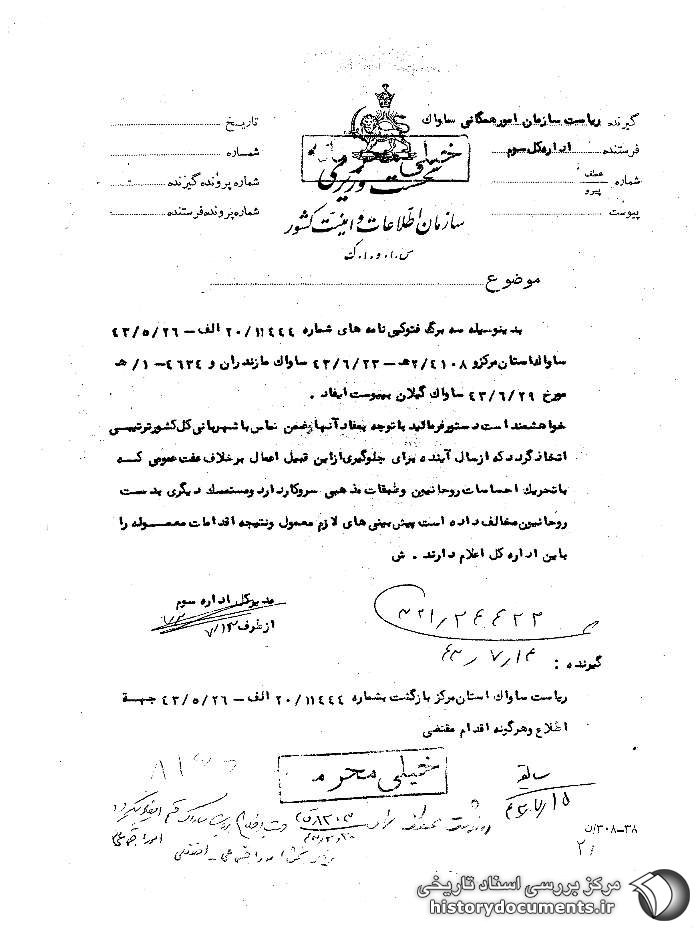 گیرنده ریاست سازمان امور همگانی ساواک
فرستنده اداره کل سوم
شماره عطف پیرو
پیوست
تاریخ
شماره
شماره پرونده گیرنده
شماره پرونده فرستنده
خیلی محرمانه
نخست وزیری
سازمان اطلاعات و امنیت کشور
س.ا.و.ا.ک
موضوع
بدینوسیله سه برگ فتوکپی نامه های شماره ۲۰/۱۱۴۴۴ الف – ۴۳/۵/۲۶
ساواک استان مرکز و ۲/۴۱۰۸هـ – ۴۳/۶/۲۳ ساواک مازندران و ۴۶۳۴ – ۱/ هـ
مورخ ۴۳/۶/۲۹ ساواک گیلان بپیوست ایفاد .
خواهشمند است دستور فرمائید با توجه بمفاد آنها و ضمن تماس با شهربانی کل کشور ترتیبی
اتخاذ گردد که از سال آینده برای جلوگیری از این قبیل اعمال بر خلاف عفت عمومی که
با تحریک احساسات روحانیون و طبقات مذهبی سر و کار دارد و مستمسک دیگری بدست
روحانیون مخالف داده است پیش بینی های لازم معمول و نتیجه اقدامات معموله را
باین اداره کل اعلام دارند . ش
مدیر کل اداره سوم
از طرف ۷/۱۳
۳۲۱/۲۴۴۲۲
۴۳/۷/۱۴
گیرنده :
ریاست ساواک استان مرکز بازگشت بشماره ۲۰/۱۱۴۴۴ الف – ۴۳/۵/۲۶ جهة
اطلاع و هرگونه اقدام مقتضی
خیلی محرمانه
سابقه
۴۳/۷/۱۵
۳۸–۳۰۸/ن
۲۱
مرکز بررسی اسناد تاریخی
historydocuments.ir